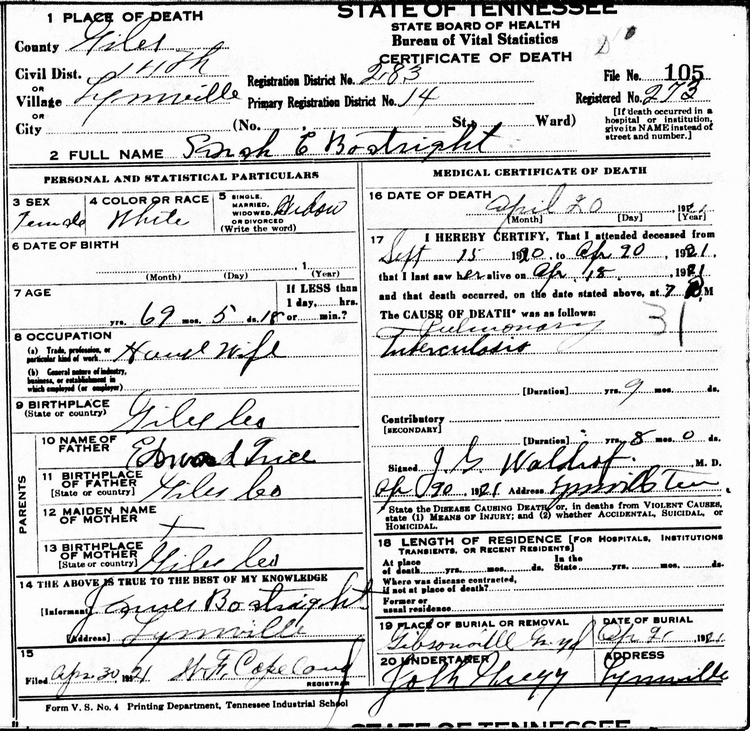 STATE OF TENNESSEE
STATE BOARD OF HEALTH
Bureau of Vital Statistics
CERTIFICATE OF DEATH
1 PLACE OF DEATH
County Giles
Civil Dist. 14th
OR
Village Lynnville
OR
City
Registration District No. 283
Primary Registration District No. 14
(No. St., Ward)
File No. 105
Registered No. 273
[If death occurred in a hospital or institution, give its NAME instead of street and number.]
2 FULL NAME Sarah E Boatright
PERSONAL AND STATISTICAL PARTICULARS
3 SEX
Female
4 COLOR OR RACE
White
5 SINGLE, MARRIED, WIDOWED, OR DIVORCED (Write the word)
Widow
6 DATE OF BIRTH
, 1
(Month) (Day) (Year)
7 AGE
yrs. 69 mos. 5 ds. 18
If LESS than 1 day, hrs. or min.?
8 OCCUPATION
(a) Trade, profession, or particular kind of work House Wife
(b) General nature of industry, business, or establishment in which employed (or employer)
9 BIRTHPLACE
(State or country) Giles Co
PARENTS
10 NAME OF FATHER Edward Trice
11 BIRTHPLACE OF FATHER
[State or country] Giles Co
12 MAIDEN NAME OF MOTHER
13 BIRTHPLACE OF MOTHER
(State or country) Giles Co
14 THE ABOVE IS TRUE TO THE BEST OF MY KNOWLEDGE
[Informant] James Boatright
[Address] Lynnville
15
Filed Apr 30, 1921 W. F. Copeland
REGISTRAR
MEDICAL CERTIFICATE OF DEATH
16 DATE OF DEATH
April 20 1921
[Month] [Day] [Year]
17 I HEREBY CERTIFY, That I attended deceased from
Sept 15 1920, to Apr 20, 1921
that I last saw her alive on Apr 18, 1921
and that death occurred, on the date stated above, at 7 M
The CAUSE OF DEATH* was as follows:
Pulmonary
Tuberculosis
31
[Duration] yrs. 9 mos. ds.
Contributory
[SECONDARY]
[Duration] yrs. 8 mos. 0 ds.
Signed J. G. Waldrop. M. D.
Apr 20, 1921 Address Lynnville Tenn
*State the DISEASE CAUSING DEATH, or, in deaths from VIOLENT CAUSES, state (1) MEANS OF INJURY; and (2) whether ACCIDENTAL, SUICIDAL, or HOMICIDAL.
18 LENGTH OF RESIDENCE [FOR HOSPITALS, INSTITUTIONS TRANSIENTS, OR RECENT RESIDENTS]
At place of death yrs. mos. ds. In the State yrs. mos. ds.
Where was disease contracted, if not at place of death?
Former or usual residence
19 PLACE OF BURIAL OR REMOVAL
Gibsonville G. yd
DATE OF BURIAL
Apr 21 1921
20 UNDERTAKER
ADDRESS
Gregg Lynnville
Form V. S. No. 4 Printing Department, Tennessee Industrial School
STATE OF TENNESSEE